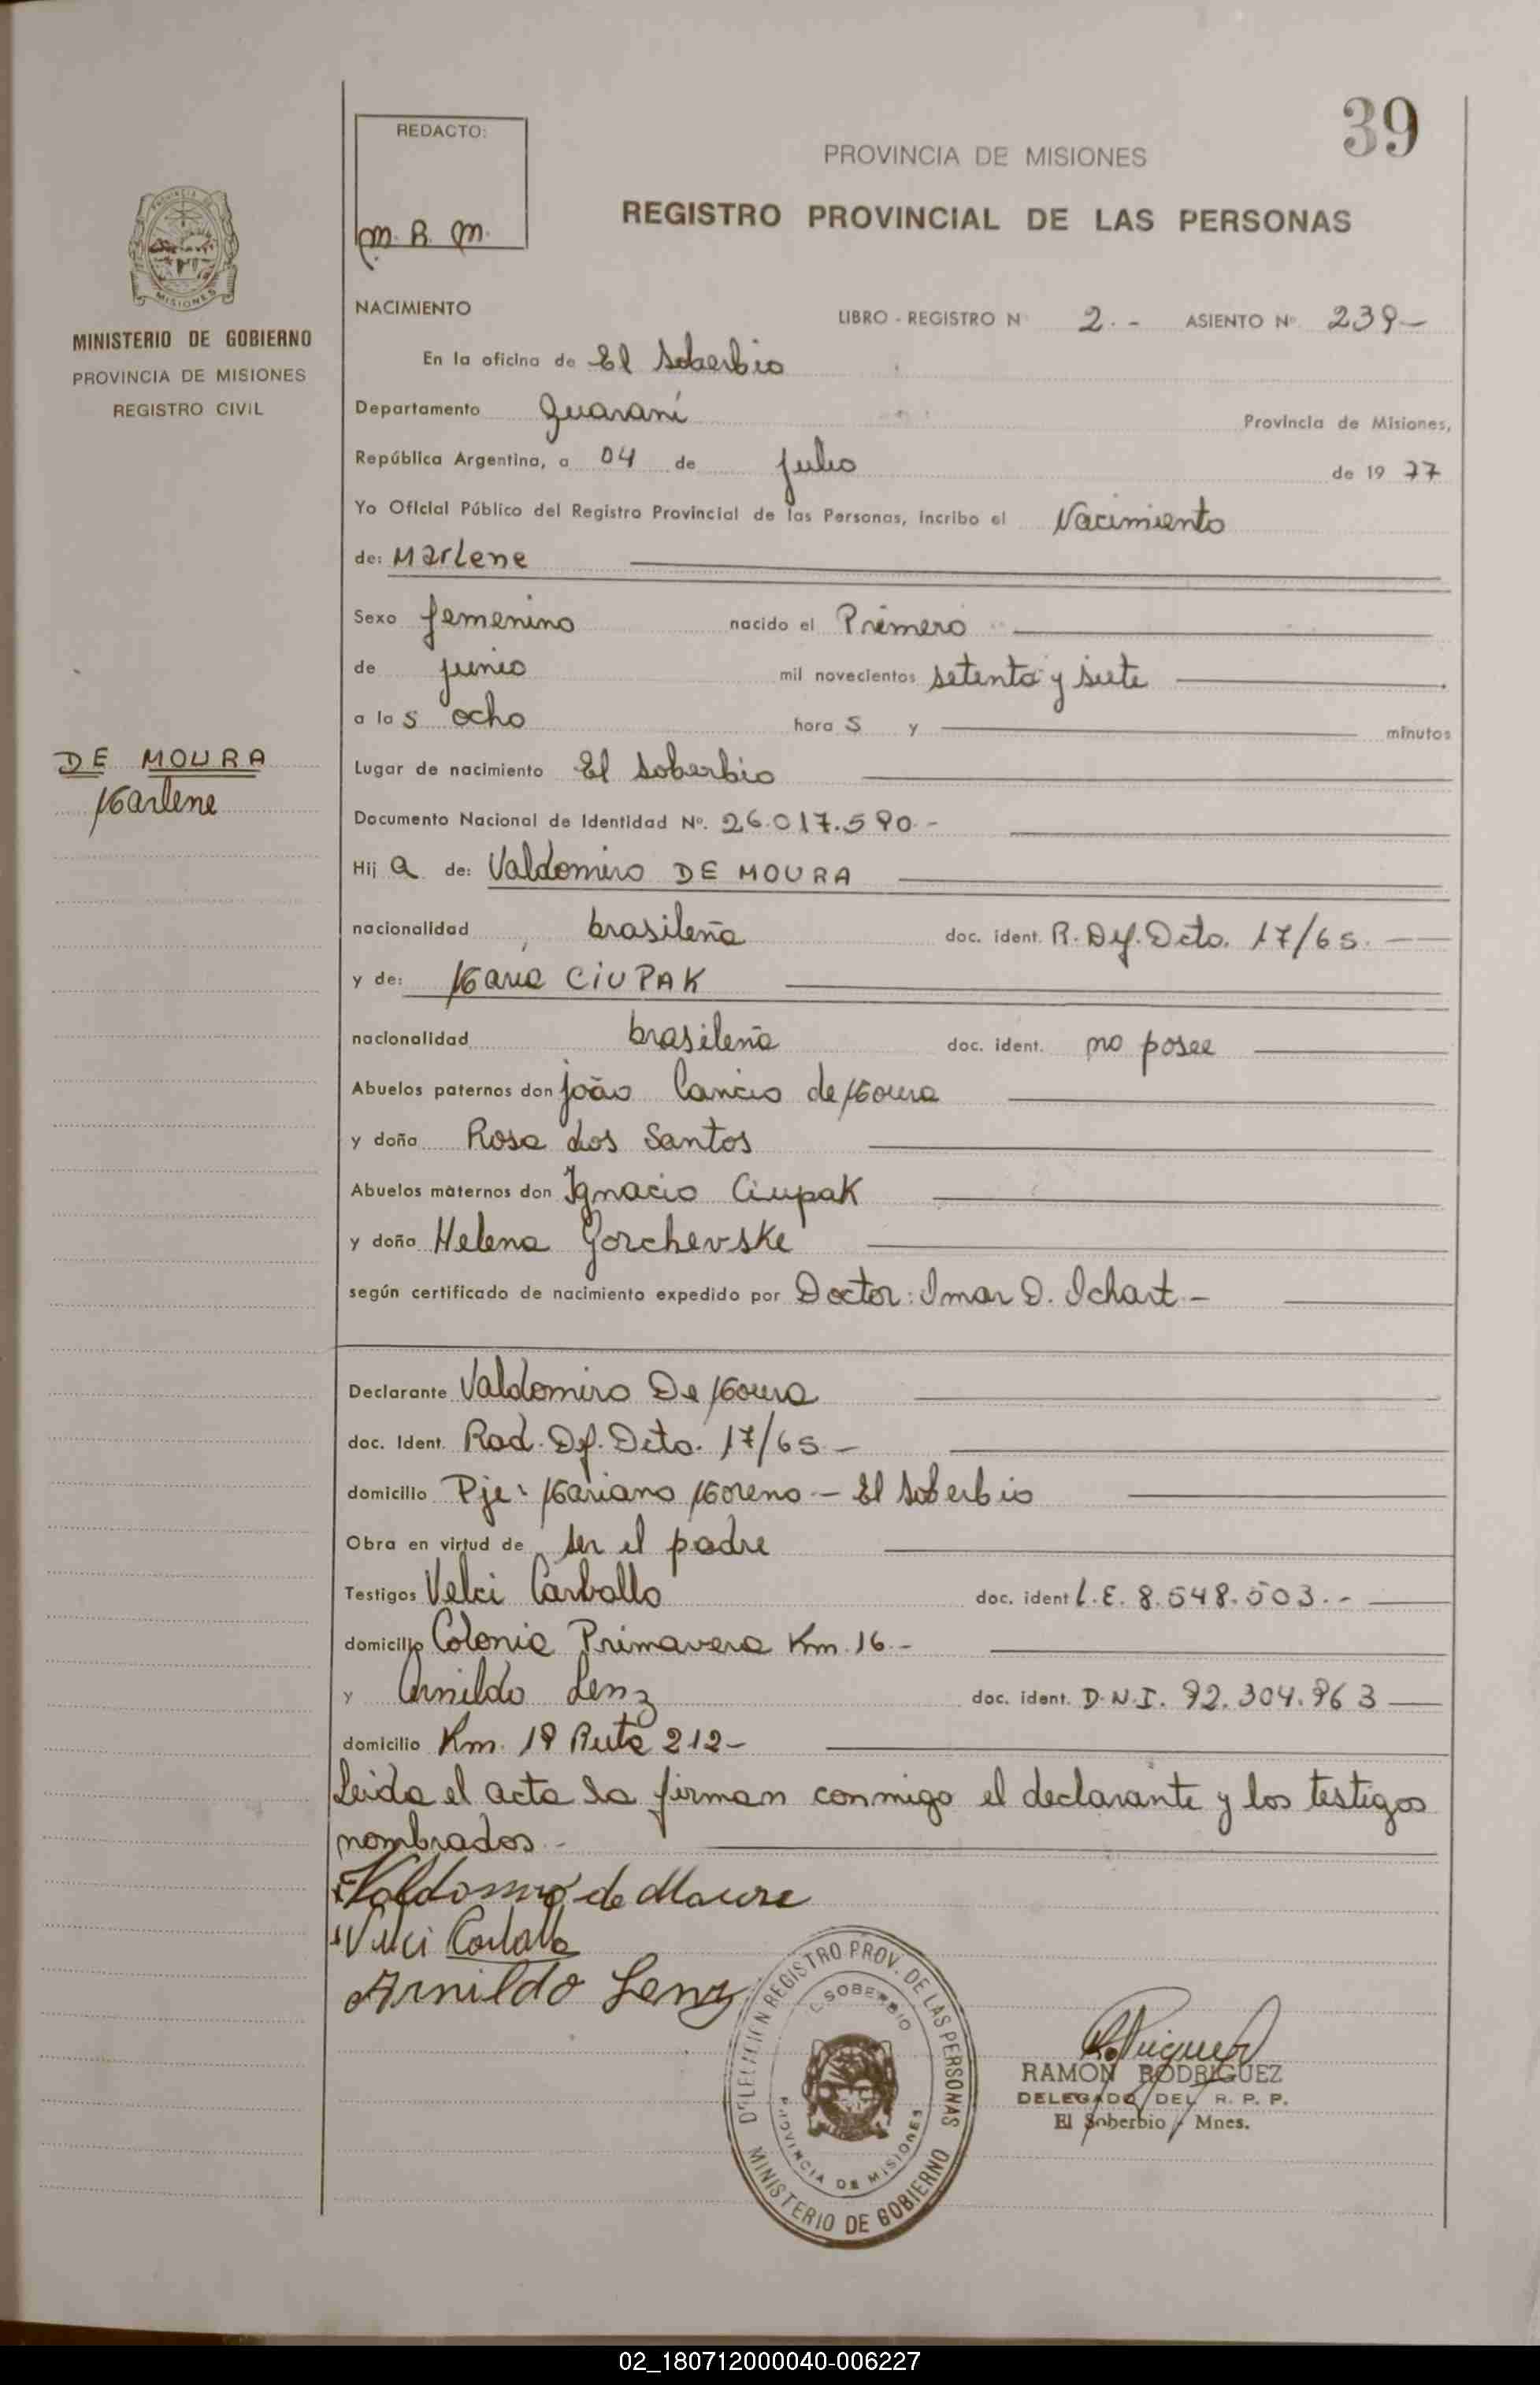 39
REDACTO:
M. R. M.
PROVINCIA DE MISIONES
REGISTRO PROVINCIAL DE LAS PERSONAS
MISIONES
MINISTERIO DE GOBIERNO
PROVINCIA DE MISIONES
REGISTRO CIVIL
NACIMIENTO
LIBRO - REGISTRO N 2.- ASIENTO Nº 239-
En la oficina de El Soberbio
Departamento Guaraní Provincia de Misiones,
República Argentina, a 04 de Julio de 1977
Yo Oficial Público del Registro Provincial de las Personas, incribo el Nacimiento
de: Marlene
Sexo femenino nacido el Primero
de junio mil novecientos setenta y siete
a las ocho horas y minutos
DE MOURA
Marlene
Lugar de nacimiento El Soberbio
Documento Nacional de Identidad Nº. 26.017.590.-
Hija de: Valdomiro DE MOURA
nacionalidad brasileña doc. ident. R. Dy. Dcto. 17/65.
y de: Maria CIUPAK
nacionalidad brasileña doc. ident. no posee
Abuelos paternos don João Cancio de Moura
y doña Rosa dos Santos
Abuelos maternos don Ignacio Ciupak
y doña Helena Gorchevske
según certificado de nacimiento expedido por Doctor: Omar D. Ichart.-
Declarante Valdomiro De Moura
doc. Ident. Rad. Df. Dcto. 17/65.-
domicilio Pje: Mariano Moreno - El Soberbio
Obra en virtud de ser el padre
Testigos Velci Carballo doc. ident L.E. 8.548.503.-
domicilio Colonia Primavera Km. 16.-
y Arnildo Lenz doc. ident. D.N.I. 92.304.963
domicilio Km. 18 Ruta 212-
Leida el acta la firman conmigo el declarante y los testigos
nombrados.-
Valdomiro de Moura
Velci Carballo
Arnildo Lenz
DELEGACION REGISTRO PROV. DE LAS PERSONAS
EL SOBERBIO
PROVINCIA DE MISIONES
MINISTERIO DE GOBIERNO
RAMON RODRIGUEZ
DELEGADO DEL R. P. P.
El Soberbio - Mnes.
02_180712000040-006227